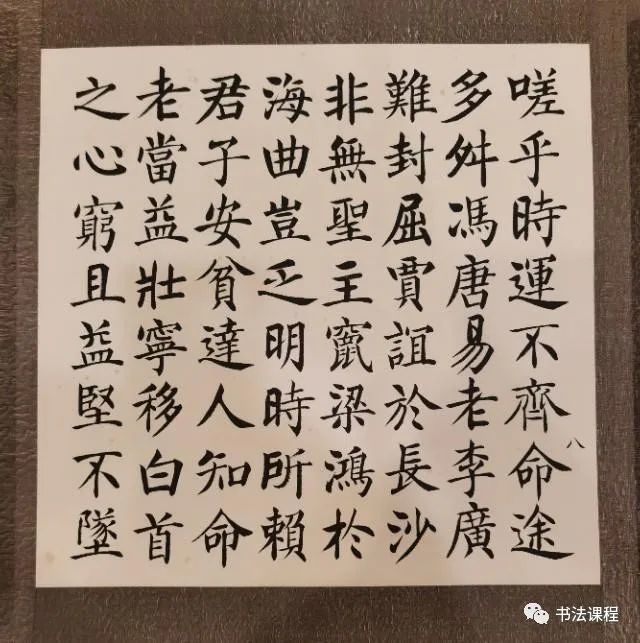 嗟乎時運不齊命途
多舛馮唐易老李廣
難封屈賈誼於長沙
非無聖主竄梁鴻於
海曲豈乏明時所賴
君子安貧達人知命
老當益壯寧移白首
之心窮且益堅不墜
八
书法课程